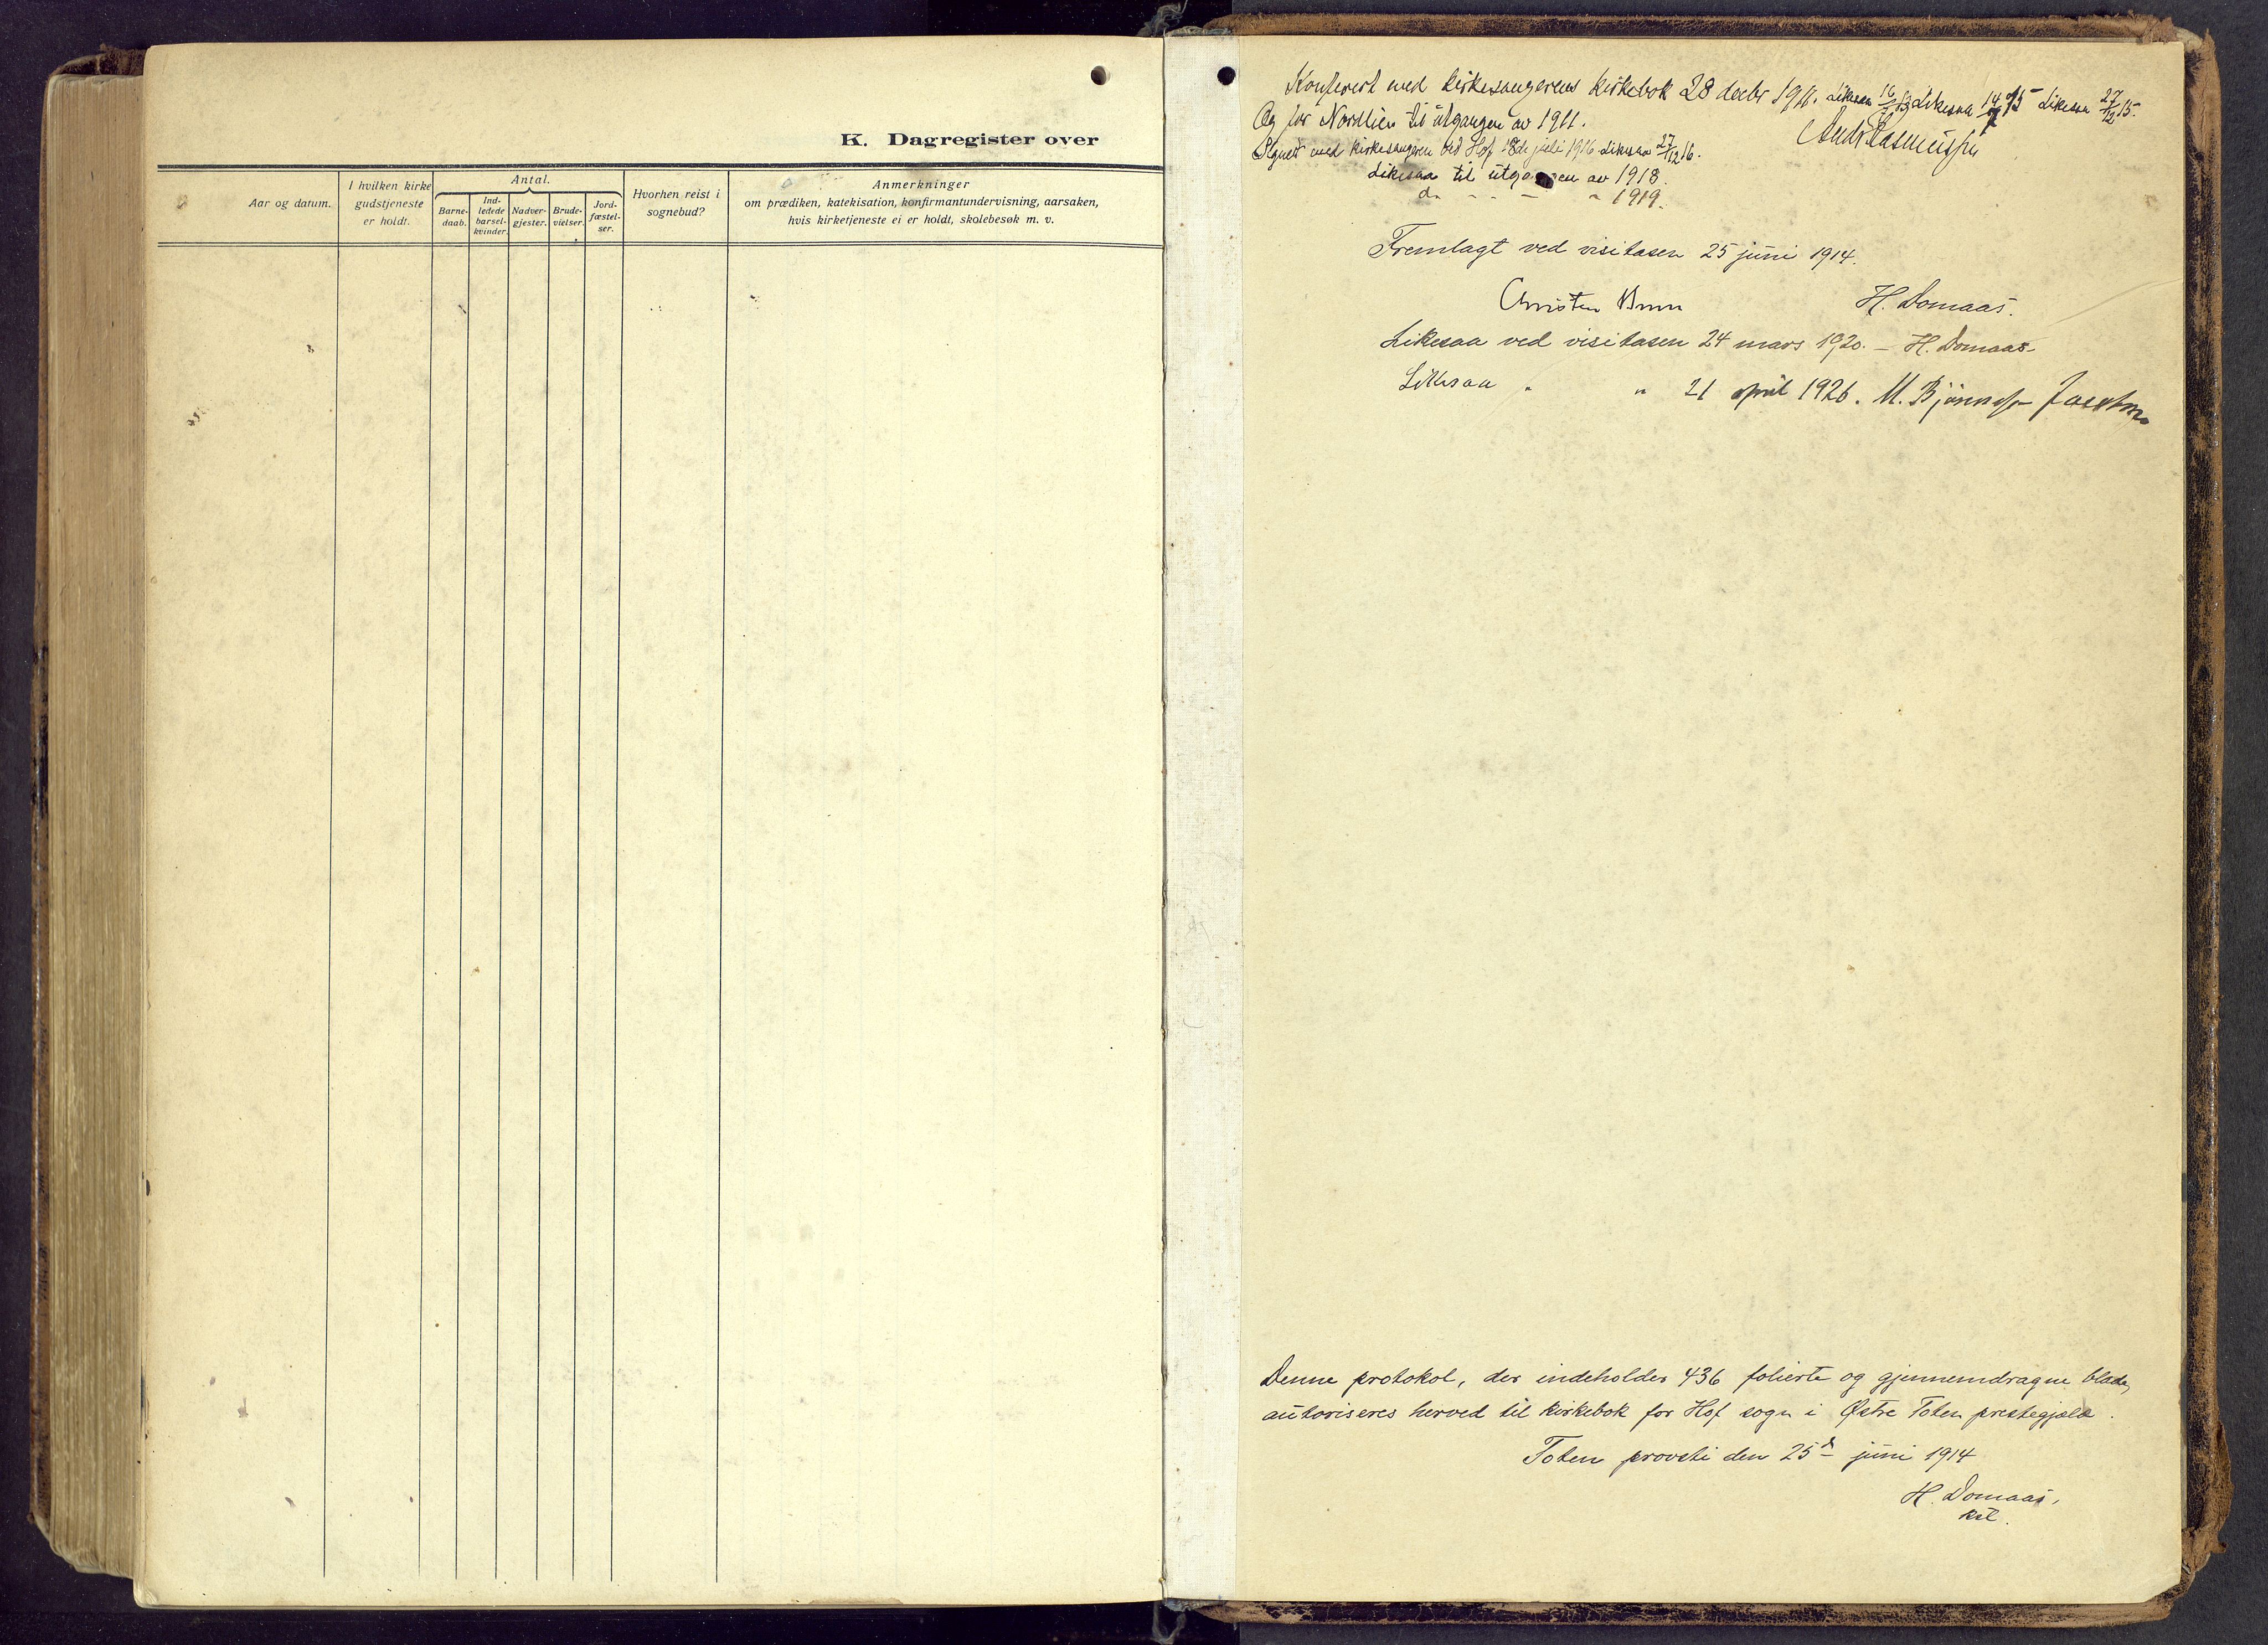 K. Dagregister over
Aar og datum.
I hvilken kirke
gudstjeneste
er holdt.
Antal.
Barne-
daab.
Ind-
ledede
barsel-
kvinder.
Nadver-
gjester.
Brude-
vielser.
Jord-
fæstel-
ser.
Hvorhen reist i
sognebud?
Anmerkninger
om prædiken, katekisation, konfirmantundervisning, aarsaken,
hvis kirketjeneste ei er holdt, skolebesøk m. v.
Konferert med kirkesangerens kirkebok 28 decbr 1911. Likesaa Likesaa Likesaa 27/12 15.
Og for Nordlien til utgangen av 1911.
med kirkesangeren ved Hof 18de juli 1916 Likesaa 27/12 16.
Likesaa til utgangen av 1918.
do - - - - 1919.
Fremlagt ved visitasen 25 juni 1914.
Christen Brun H. Domaas.
Likesaa ved visitasen 24 mars 1920. – H. Domaas
Likesaa " " 21 april 1926. M. Bjönness-Jacobsen
Denne protokol, der indeholder 436 folierte og gjennemdragne blade,
autoriseres herved til kirkebok for Hof sogn i Østre Toten prestegjæld.
Toten provsti den 25d juni 1914
H. Domaas,
kst.